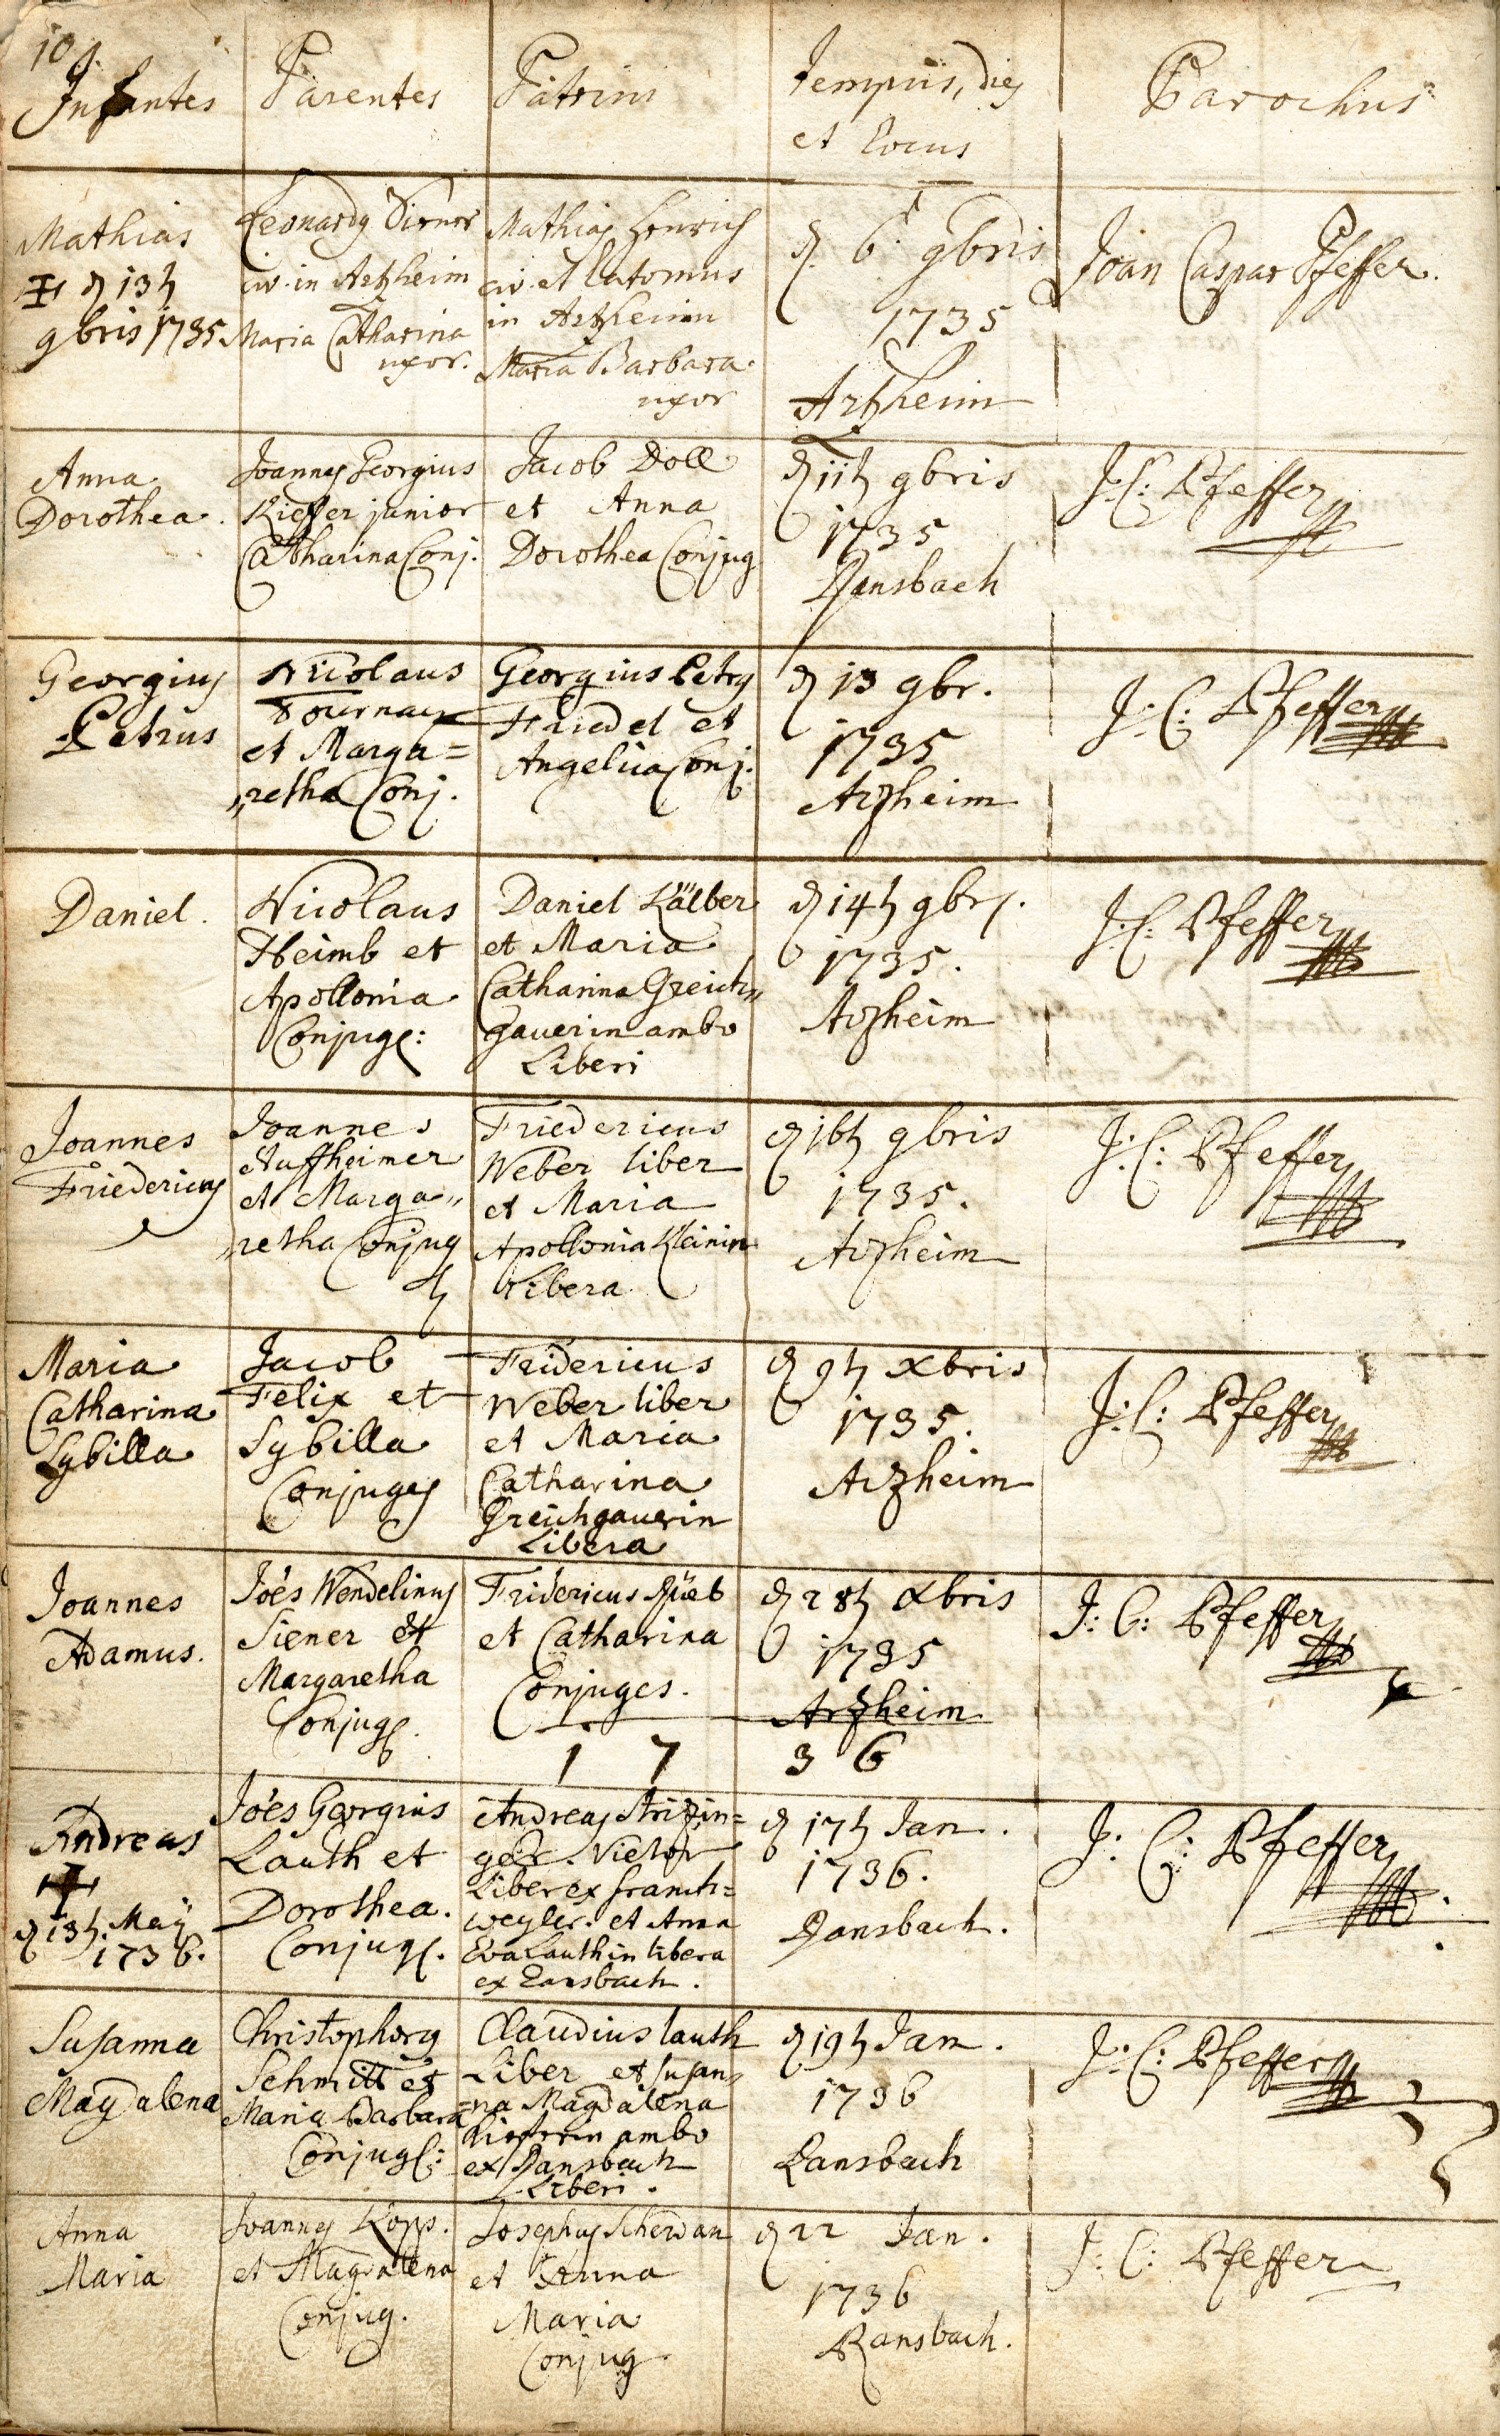 10
Infantes
Parentes
Patrini
Tempus, dies
et Locus
Parochus
Mathias
d 13t
9bris 1735
Leonardus
civ. in Artzheim
Maria Catharina
uxor.
Mathias Henrich
civ. et latomus
in Artzheim
Maria Barbara
uxor
d. 6t 9bris
1735
Artzheim
Joan Caspar Pfeffer.
Anna
Dorothea.
Joannes Georgius
Kieffer junior
Catharina Conj.
Jacob Doll
et Anna
Dorothea Conjug
d 11t 9bris
1735
Ransbach
J: C: Pfeffer
Georgius
Petrus
Nicolaus
Tournay
et Marga=
„retha Conj.
Georgius Petrus
Friedel et
Angelica Conj.
d 13 9br.
1735
Arzheim
J: C: Pfeffer
Daniel.
Nicolaus
Heimb et
Apollonia
Conjuges:
Daniel Kälber
et Maria
Catharina Greich„
gauerin ambo
Liberi
d 14t 9bris.
1735.
Arzheim
J: C: Pfeffer
Joannes
Friedericus
Joannes
Auffheimer
et Marga„
„retha Conjug
Friedericus
Weber liber
et Maria
Apollonia Kleinin
Libera
d 16t 9bris
1735.
Arzheim
J: C: Pfeffer
Maria
Catharina
Sybilla
Jacob
Felix et
Sybilla
Conjuges
Fridericus
Weber liber
et Maria
Catharina
Greichgauerin
Libera
d 9t Xbris
1735.
Arzheim
J: C: Pfeffer
Joannes
Adamus.
Joës Wendelinus
Siener et
Margaretha
Conjuges.
Fridericus Rüeb
et Catharina
Conjuges.
d 28t Xbris
1735
Arzheim
J: C: Pfeffer
1 7 3 6
Andreas
d 13t. May
1736.
Joës Georgius
Lauth et
Dorothea.
Conjuges.
Andreas Strizin=
ger. Vietor
Liber ex franck=
weyler. et Anna
Eva Lauthin libera
ex Ransbach.
d 17t Jan.
1736.
Ransbach.
J: C: Pfeffer
Susanna
Magdalena
Christophorus
Schmitt et
Maria Barbara
Conjuges:
Claudius Lauth
Liber et Susan„
na Magdalena
Kiefferin ambo
ex Ransbach
Liberi.
d 19t Jan.
1736
Ransbach
J: C: Pfeffer
Anna
Maria
Joannes Kopp.
et Magdalena
Conjug.
Josephus Scherdan
et Anna
Maria
Conjug
d 22 Jan.
1736
Ransbach.
J: C: Pfeffer